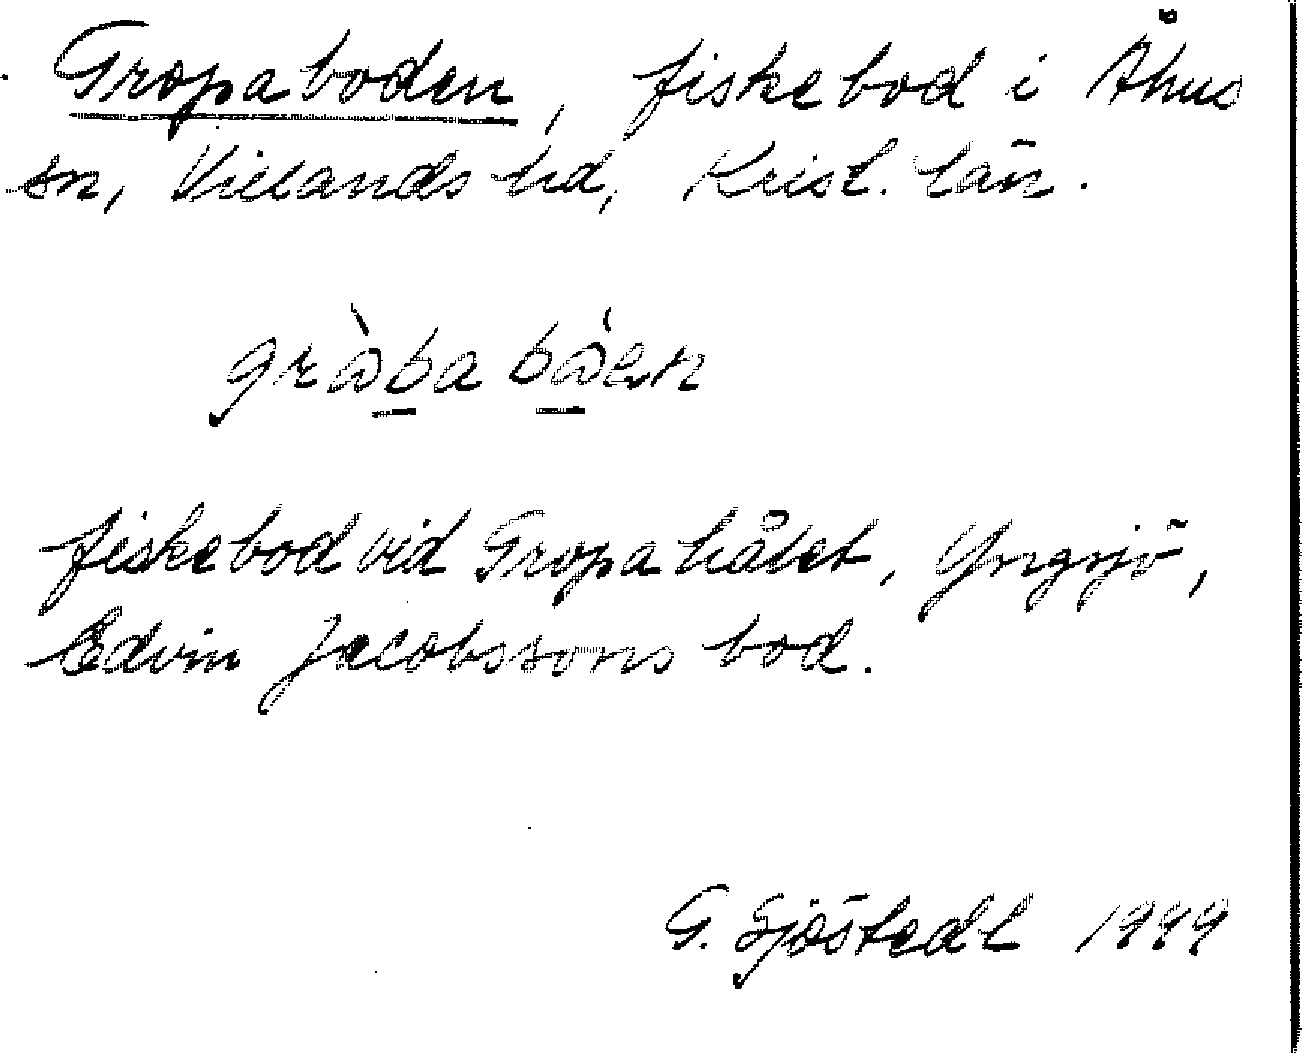 Gropaboden, fiskebod i Åhus
sn, Villands hd, Krist. län.
fiskebod vid Gropahålet, Yngsjö,
Edvin Jacobssons bod.
G. Sjöstedt 1949